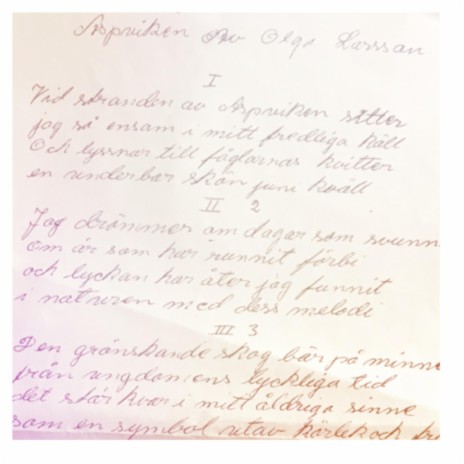 Aspviken Av Olga Larsson
I
Vid stranden av Aspviken sitter
jag så ensam i mitt fredliga käll
Och lyssnar till fåglarnas kvitter
en underbar skön juni kväll
II 2
Jag drömmer om dagar som svunn
om år som har runnit förbi
och lyckan har åter jag funnit
i naturen med dess melodi
III 3
Den grönskande skog bär på minne
från ungdomens lyckliga tid
det står kvar i mitt åldriga sinne
som en symbol utav kärlek och fri